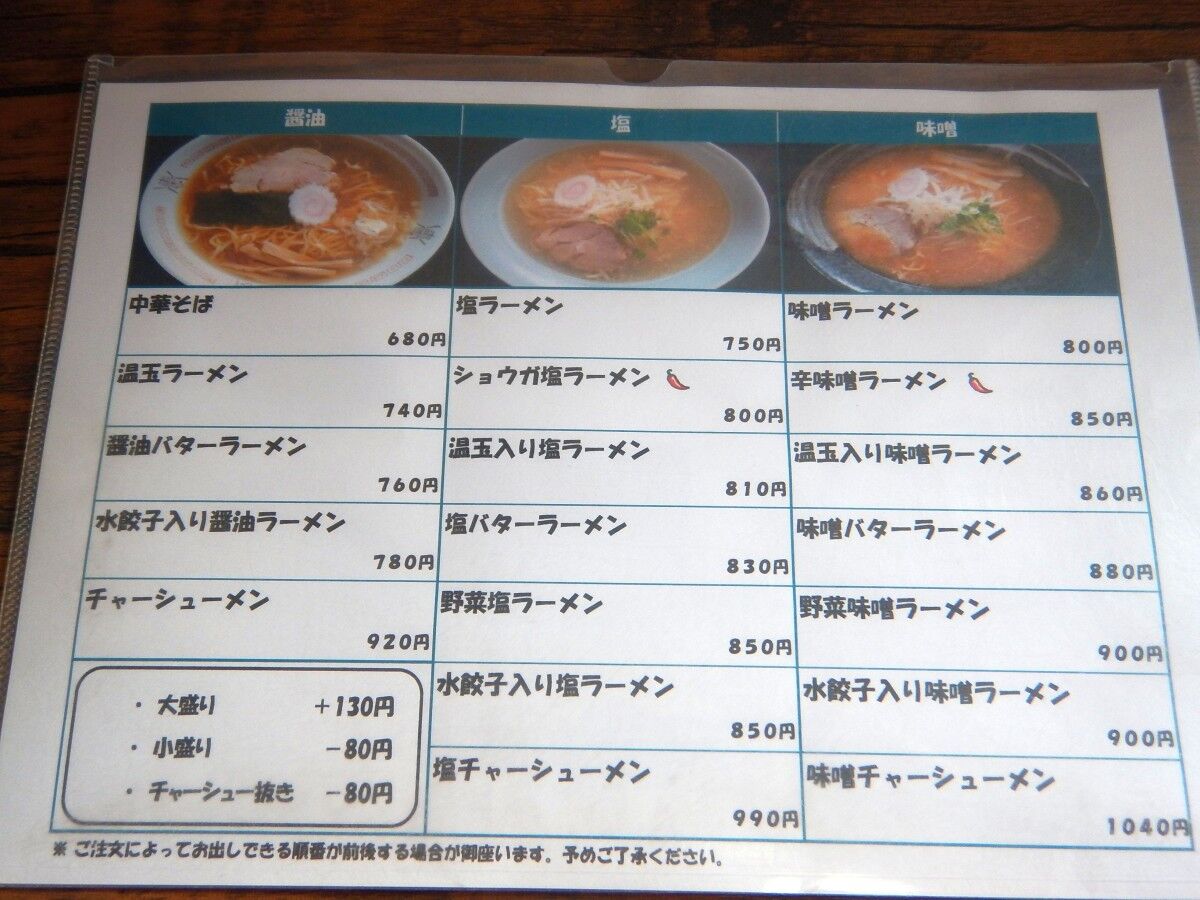 醤油
塩
味噌
中華そば
680円
温玉ラーメン
740円
醤油バターラーメン
760円
水餃子入り醤油ラーメン
780円
チャーシューメン
920円
・ 大盛り +130円
・ 小盛り -80円
・ チャーシュー抜き -80円
塩ラーメン
750円
ショウガ塩ラーメン
800円
温玉入り塩ラーメン
810円
塩バターラーメン
830円
野菜塩ラーメン
850円
水餃子入り塩ラーメン
850円
塩チャーシューメン
990円
味噌ラーメン
800円
辛味噌ラーメン
850円
温玉入り味噌ラーメン
860円
味噌バターラーメン
880円
野菜味噌ラーメン
900円
水餃子入り味噌ラーメン
900円
味噌チャーシューメン
1040円
※ ご注文によってお出しできる順番が前後する場合が御座います。予めご了承ください。